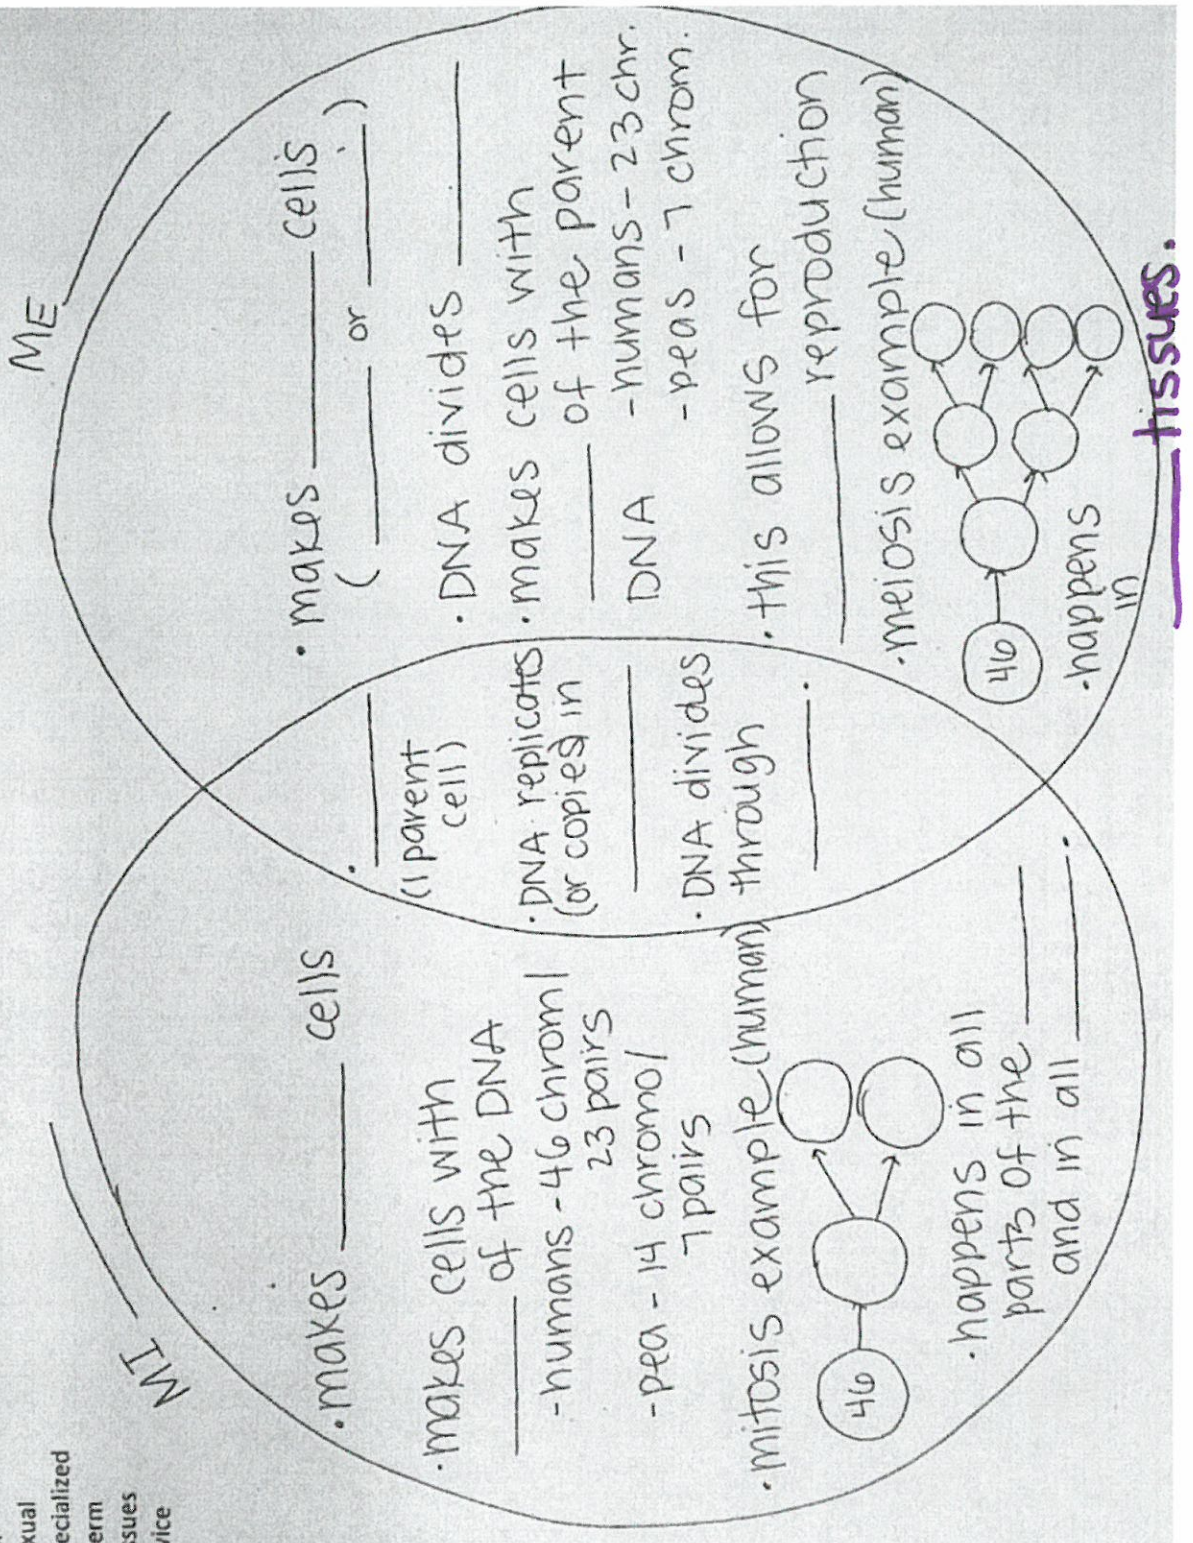 xual
ecialized
erm
ssues
vice
MI______
• makes ______ cells
• makes cells with
______ of the DNA
- humans - 46 chrom/
23 pairs
- pea - 14 chromo/
7 pairs
• mitosis example (human)
46
• happens in all
parts of the ______
and in all ______.
• ______
(1 parent
cell)
• DNA replicates
(or copies) in
______
• DNA divides
through
______.
ME______
• makes ______ cells
(______ or ______)
• DNA divides ______
• makes cells with
______ of the parent
DNA
- humans - 23 chr.
- peas - 7 chrom.
• this allows for
______ reproduction
• meiosis example (human)
46
• happens
in
______ tissues.